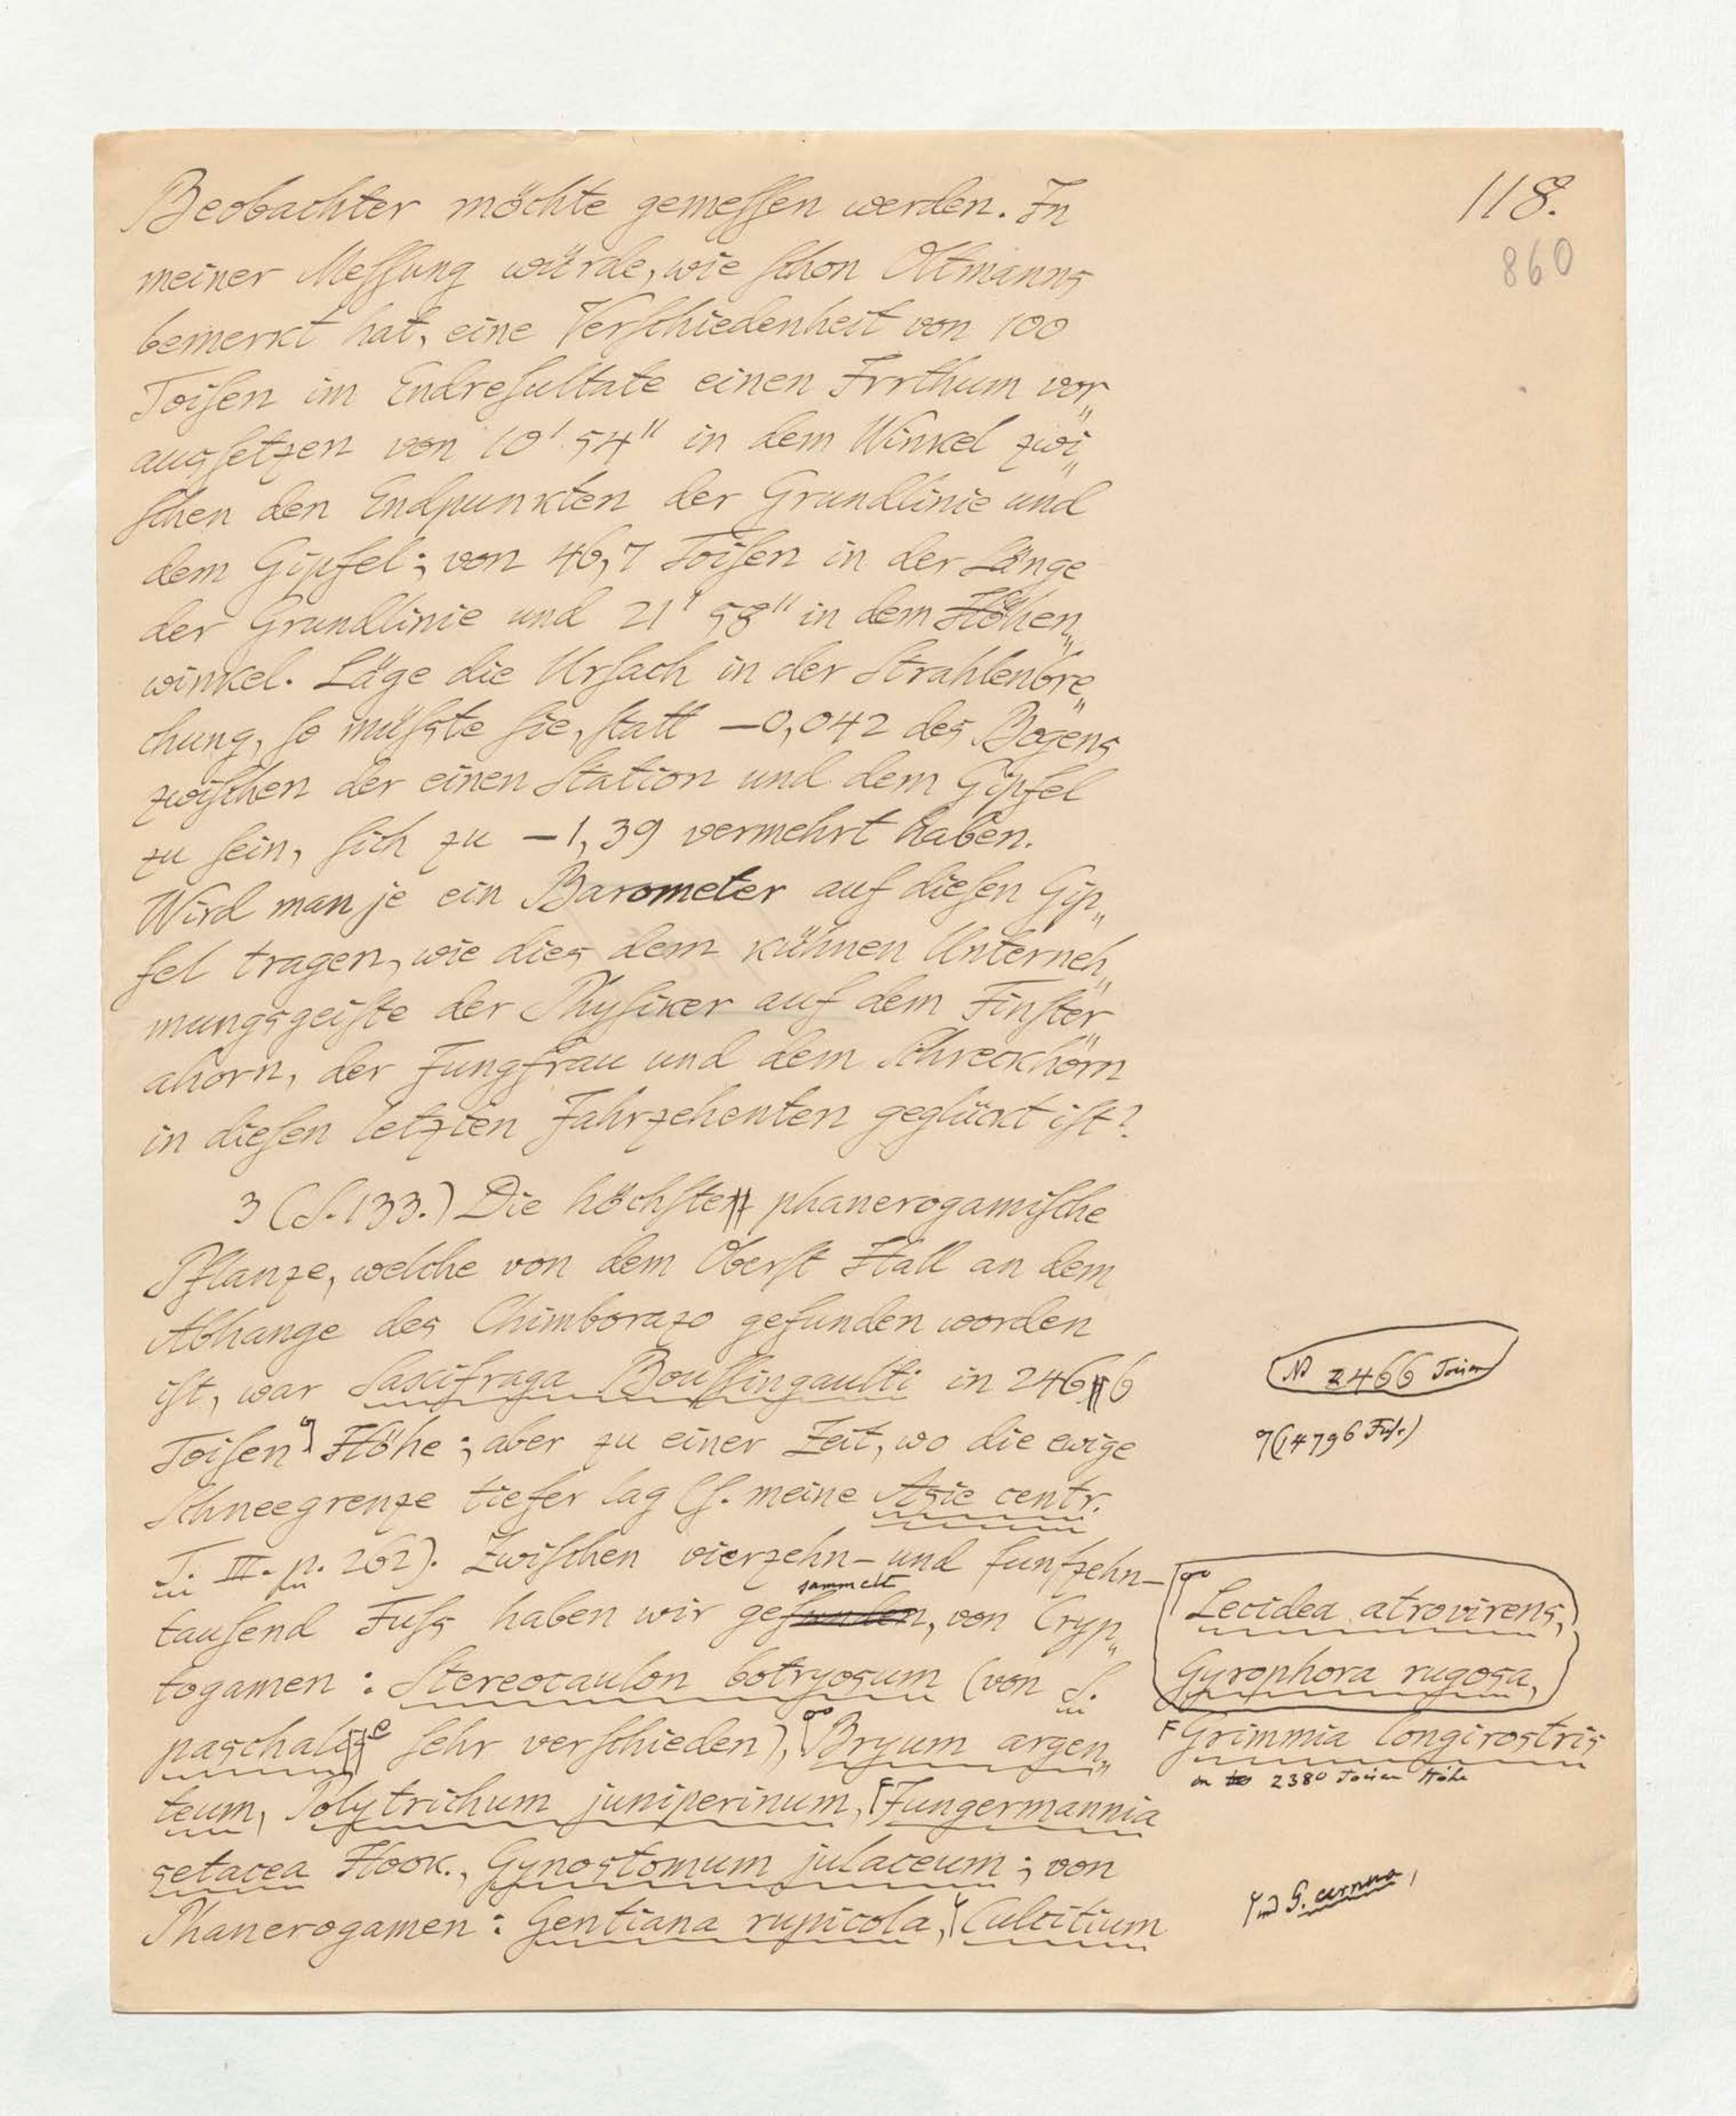 118.
860
Beobachter möchte gemeſſen werden. In
meiner Meſſung würde, wie ſchon Oltmanns
bemerkt hat, eine Verſchiedenheit von 100
Toiſen im Endreſultate einen Irrthum vor„
ausſetzen von 10' 54" in dem Winkel zwi„
ſchen den Endpunkten der Grundlinie und
dem Gipfel; von 46,7 Toiſen in der Länge
der Grundlinie und 21' 58" in dem Höhen„
winkel. Läge die Urſach in der Strahlenbre„
chung, ſo müſste ſie, ſtatt –0,042 des Bogens
zwiſchen der einen Station und dem Gipfel
zu ſein, ſich zu –1,39 vermehrt haben.
Wird man je ein Barometer auf dieſen Gip„
fel tragen, wie dies dem kühnen Unterneh„
mungsgeiſte der Phyſiker auf dem Finſter„
ahorn, der Jungfrau und dem Schreckhorn
in dieſen letzten Jahrzehenten geglückt iſt?
3 (S. 133.) Die höchſte phanerogamiſche
Pflanze, welche von dem Oberſt Hall an dem
Abhange des Chimborazo gefunden worden
iſt, war Saxifraga Bouſſingaulti in 2466
NB 2466 Toisen
Toiſen Höhe; aber zu einer Zeit, wo die ewige
(14796 Fuſs)
Schneegrenze tiefer lag (ſ. meine Asie centr.
T. III. p. 262). Zwiſchen vierzehn- und funfzehn-
sammelt
tauſend Fuſs haben wir gefunden, von Cryp„
Lecidea atrovirens,
togamen: Stereocaulon botryosum (von S.
Gyrophora rugosa,
paschale ſehr verſchieden), Bryum argen„
Grimmia longirostris
in 2380 Toisen Höhe
teum, Polytrichum juniperinum, Jungermannia
setacea Hook., Gynostomum julaceum; von
und G. cernua,
Phanerogamen: Gentiana rupicola, Culcitium